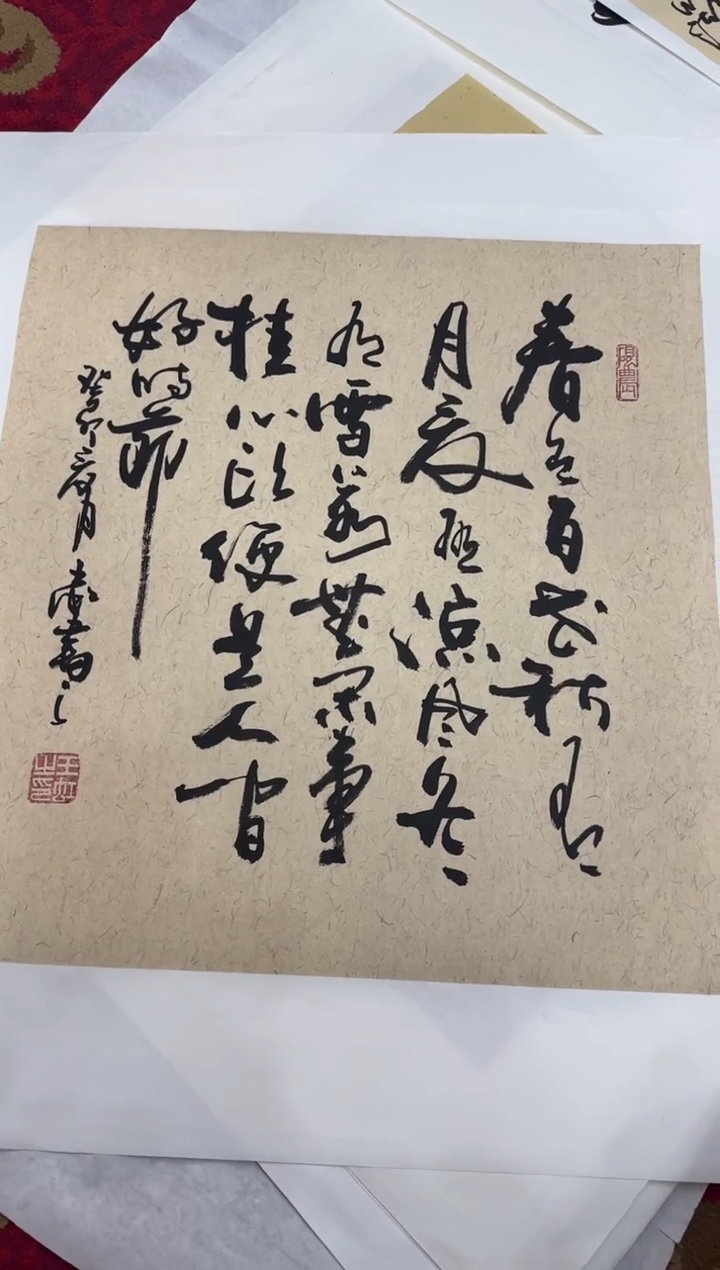 春有百花秋有
月夏有凉风冬
有雪若無闲事
挂心头便是人间
好时节
癸卯 月